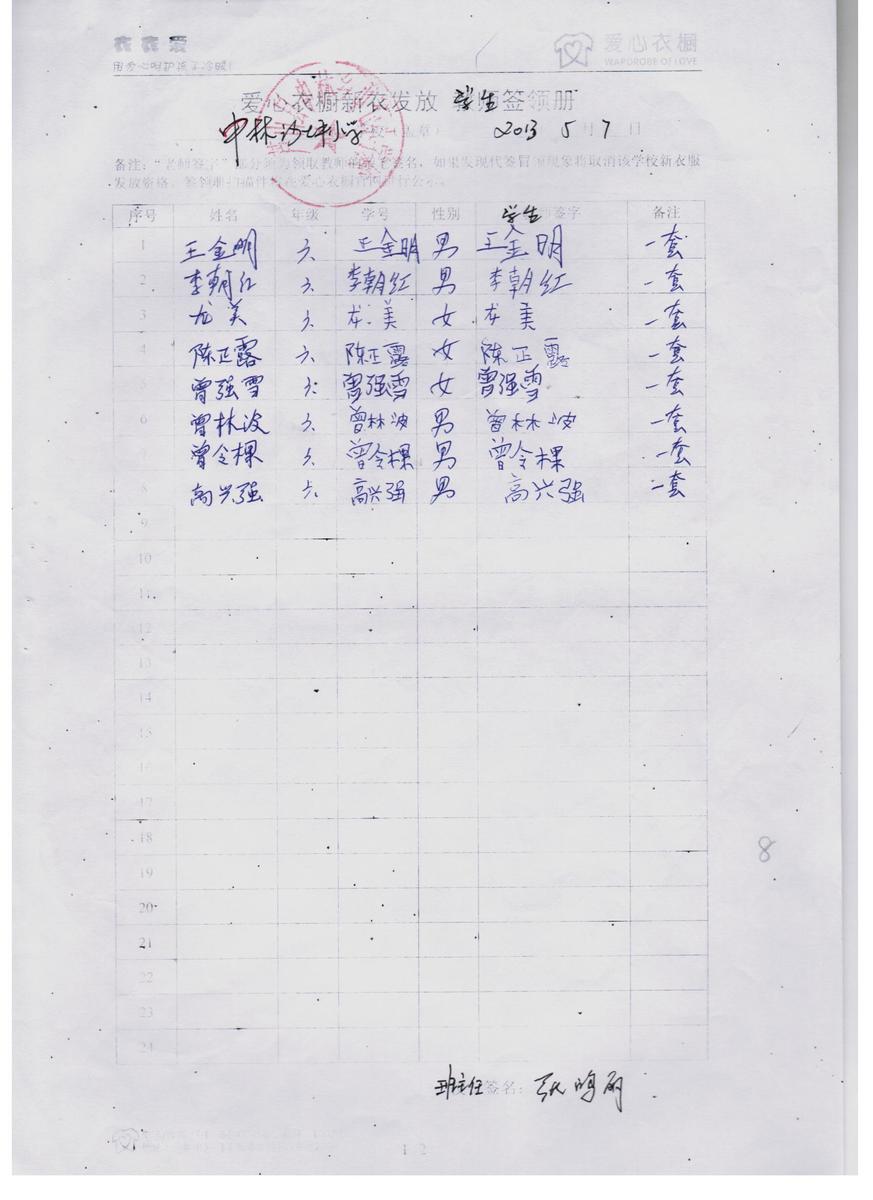 衣衣爱
用爱心呵护孩子冷暖!
爱心衣橱
WARDROBE OF LOVE
爱心衣橱新衣发放 学生签领册
中林沙坪小学 校(盖章) 2013 5月7日
备注:“老师签字”部分须为领取教师的亲笔签名,如果发现代签冒领现象将取消该学校新衣服
发放资格。签领册扫描件将在爱心衣橱官网进行公示。
序号 姓名 年级 学号 性别 学生签字 备注
1 王金明 六 王金明 男 王金明 一套
2 李朝红 六 李朝红 男 李朝红 一套
3 龙美 六 龙美 女 龙美 一套
4 陈正露 六 陈正露 女 陈正露 一套
5 曾强雪 六 曾强雪 女 曾强雪 一套
6 曾林波 六 曾林波 男 曾林波 一套
7 曾令棵 六 曾令棵 男 曾令棵 一套
8 高兴强 六 高兴强 男 高兴强 一套
9
10
11
12
13
14
15
16
17
18
19
20
21
22
23
24
8
班主任签名: 张鸣丽
1 2